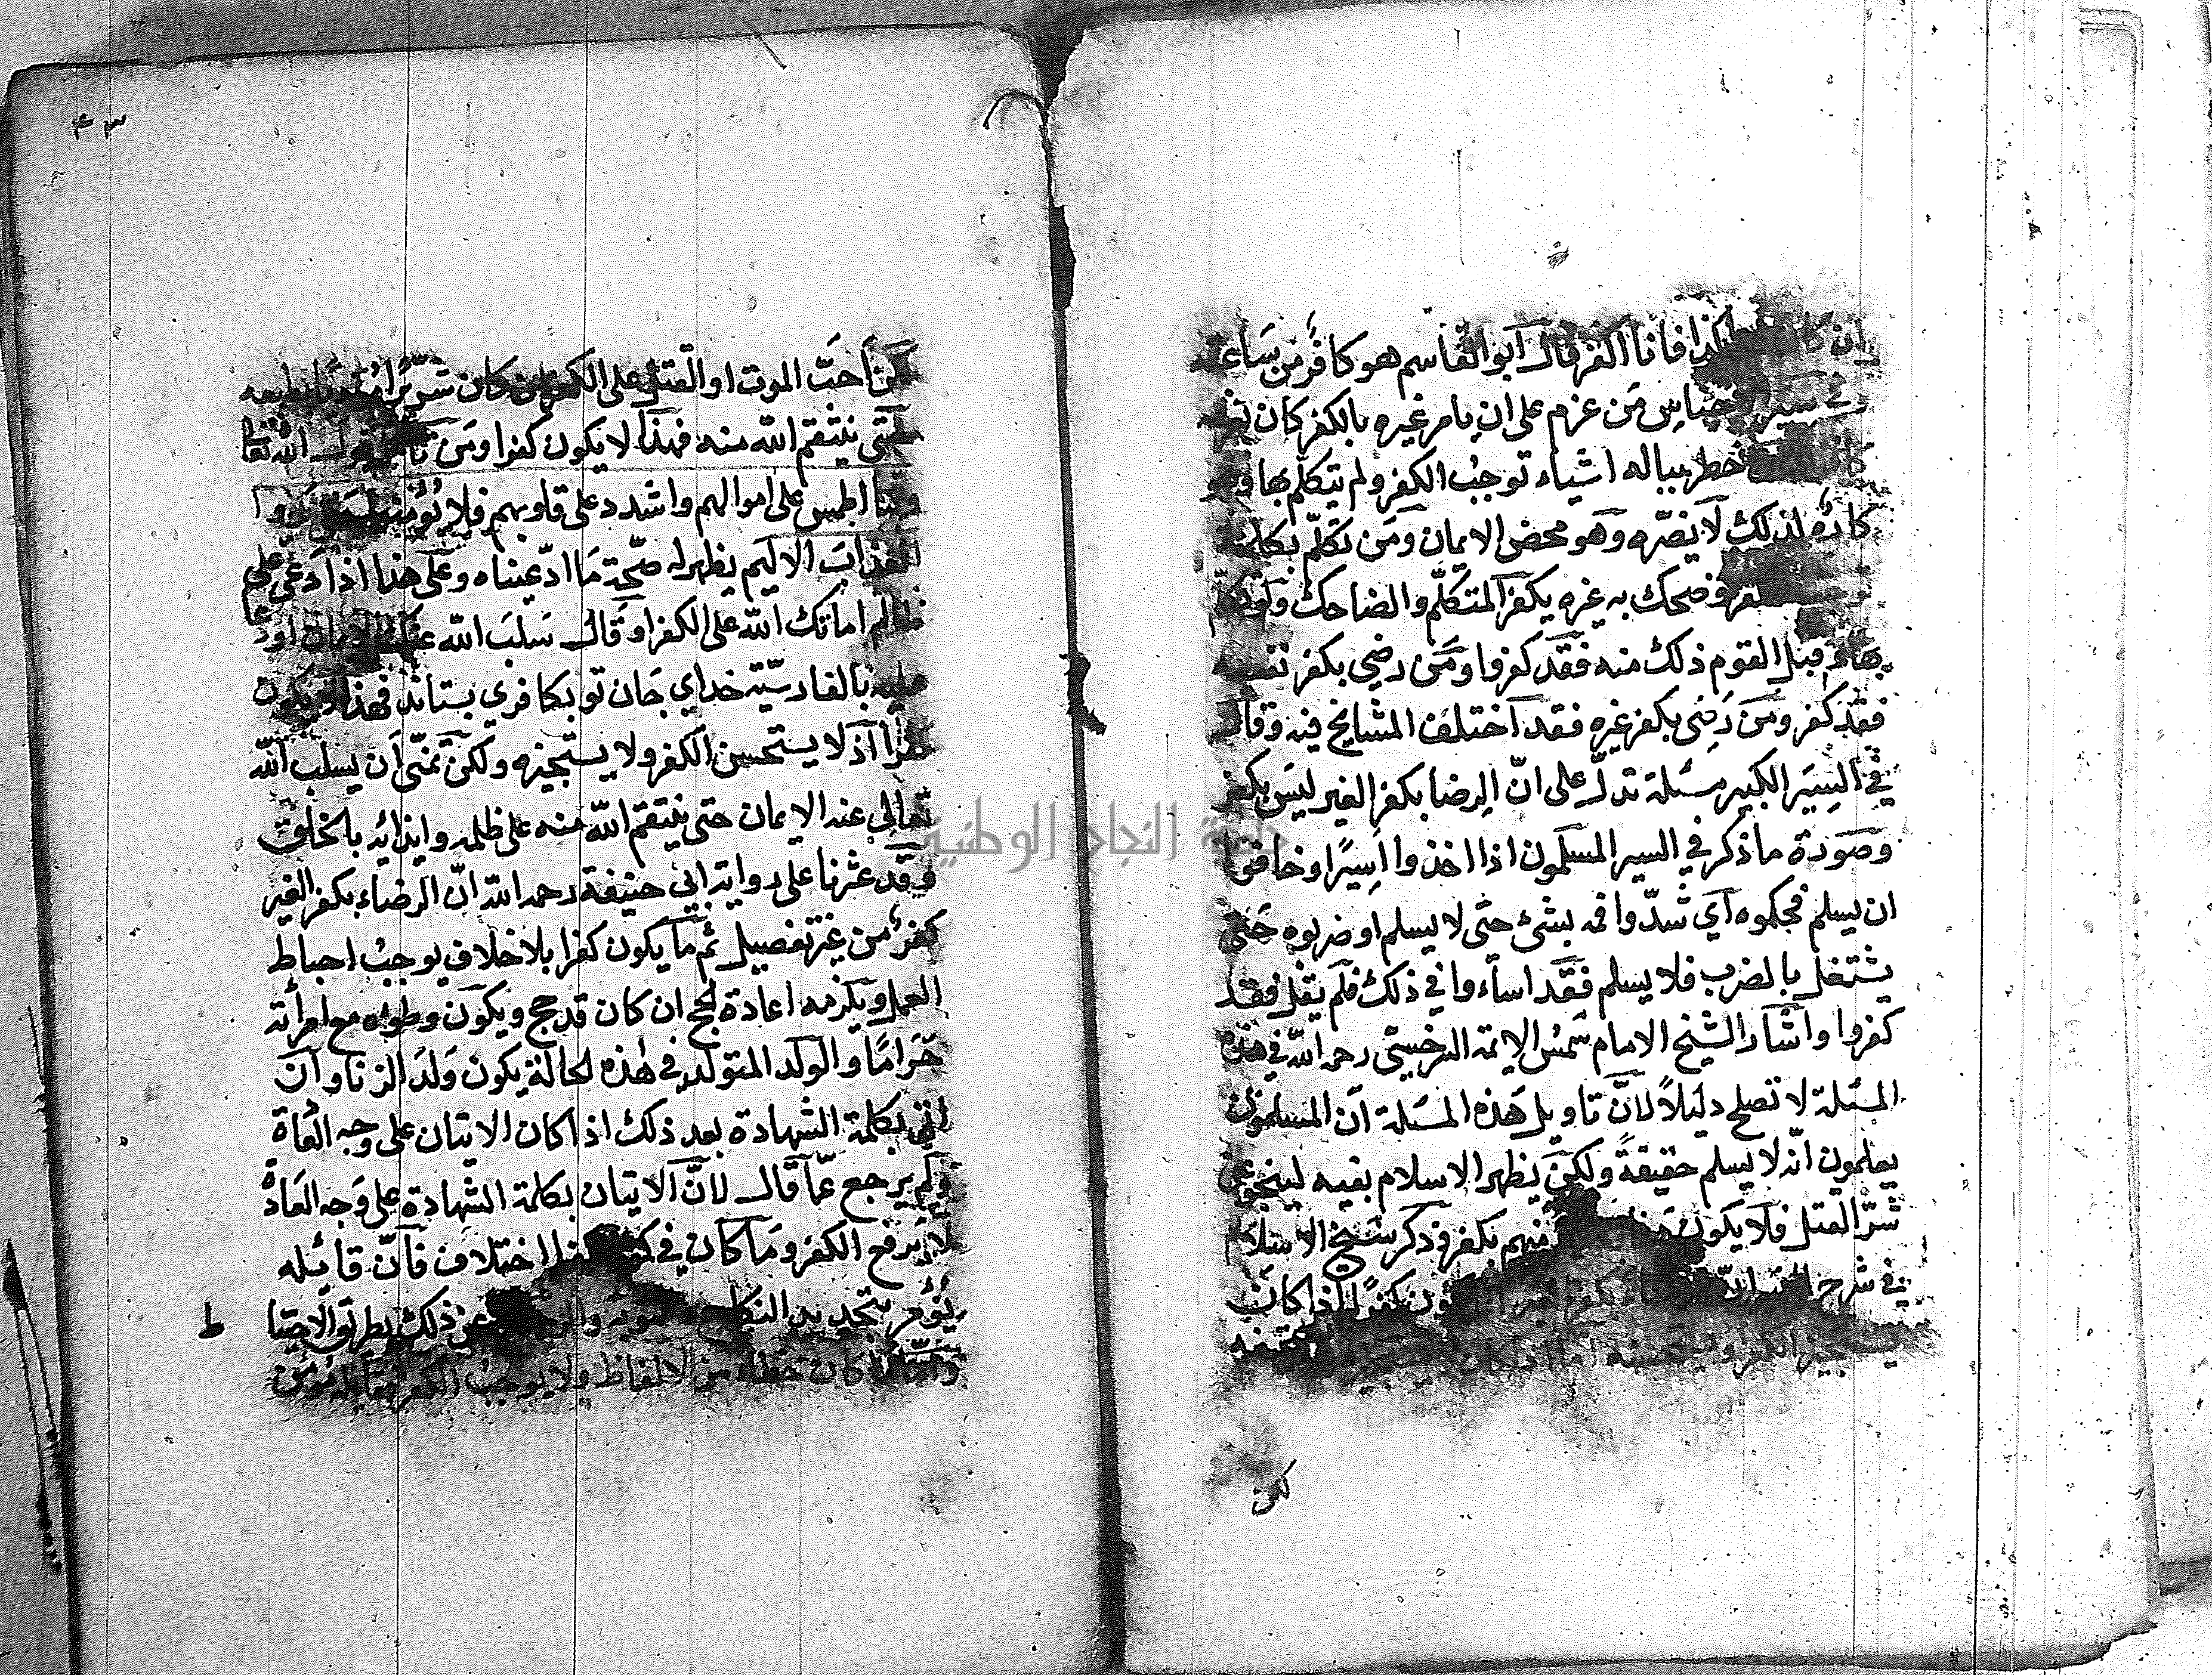 ان كان كذا فانا اكفر قال ابو القاسم هو كافر من ساعته
في سير الاجناس من عزم على ان يامر غيره بالكفر كان
خطر بباله اشياء توجب الكفر ولم يتكلم بها وهو
كاره لذلك لا يضره وهو محض الايمان ومن تكلم بكلمة
وضحك به غيره يكفر المتكلم والضاحك ولو تكلم
بها وقبل القوم ذلك منه فقد كفروا ومن رضي بكفر نفسه
فقد كفر ومن رضى بكفر غيره فقد اختلف المشايخ فيه وقال
في السير الكبير مسئلة تدل على ان الرضا بكفر الغير ليس بكفر
وصورة ما ذكر في السير المسلمون اذا اخذوا اسيرا وخافوا
ان يسلم فحكموه اي شدوا فمه بشئ حتى لا يسلم او ضربوه حتى
يشتغل بالضرب فلا يسلم فقد اساءوا في ذلك فلم يقل فقد
كفروا واشار الشيخ الامام شمس الايمة السرخسي رحمه الله في هذه
المسئلة لا تصلح دليلا لان تاويل هذه المسئلة ان المسلمون
يعلمون انه لا يسلم حقيقة ولكن يظهر الاسلام بفيه لينجو عن
شر القتل فلا يكون منهم بكفر وذكر شيخ الاسلام
في شرح السير ان بكفر الغير يكون كفرا اذا كان
يستجيز الكفر ويستحسنه اما اذا كان
لكن
٤٣
لكن احب الموت او القتل على الكفر لمن كان شريرا بطبعه
حتى ينتقم الله منه فهذا لا يكون كفرا ومن تامل قول الله تعالى
ربنا اطمس على اموالهم واشدد على قلوبهم فلا يؤمنوا حتى يروا
العذاب الاليم يظهر له صحة ما ادعيناه وعلى هذا اذا دعى على
ظالم اماتك الله على الكفر او قال سلب الله عنك الايمان او دعا
عليه بالفارسية خداي جان تو بكافري بستاند فهذا لا يكون
كفرا اذ لا يستحسن الكفر ولا يستجيزه ولكن تمنى ان يسلب الله
تعالى عنه الايمان حتى ينتقم الله منه على ظلمه وايذائه بالخلق
وقد عثرنا على رواية ابي حنيفة رحمه الله ان الرضاء بكفر الغير
كفر من غير تفصيل ثم ما يكون كفرا بلا خلاف يوجب احباط
العمل ويلزمه اعادة الحج ان كان قد حج ويكون وطوه مع امراته
حراما والولد المتولد في هذه الحالة يكون ولد الزنا وان
اتى بكلمة الشهادة بعد ذلك اذا كان الاتيان على وجه العادة
ولم يرجع عما قال لان الاتيان بكلمة الشهادة على وجه العادة
لا يرفع الكفر وما كان في كونه كفرا اختلاف فان قائله
يؤمر بتجديد النكاح والتوبة والرجوع عن ذلك بطريق الاحتيا
ط
واما ما كان خطاء من الالفاظ ولا يوجب الكفر فقايله مؤمن